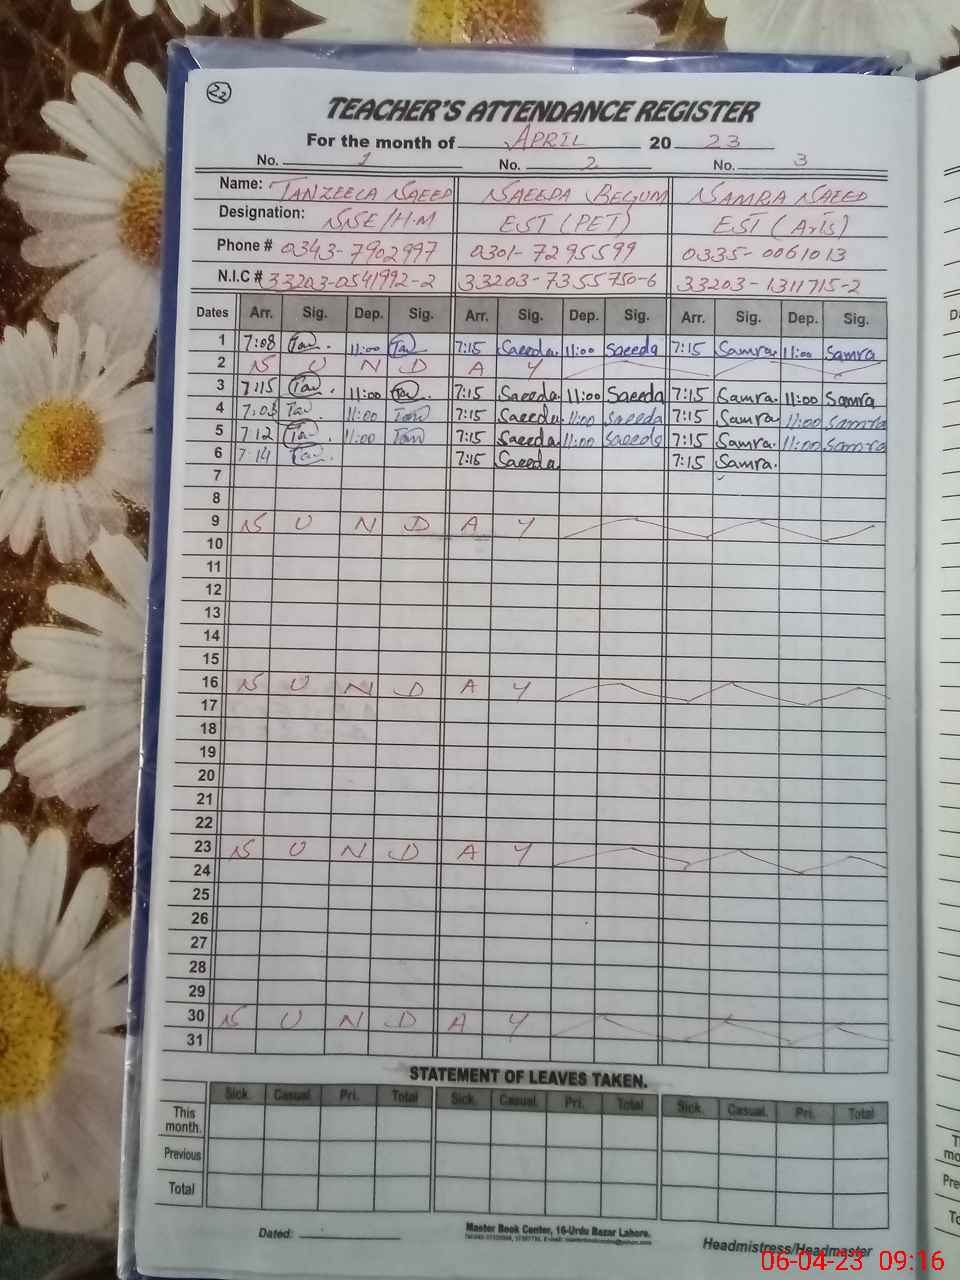 22
TEACHER'S ATTENDANCE REGISTER
For the month of APRIL 20 23
No. 1 No. 2 No. 3
Name: TANZEELA SAEED SAEEDA BEGUM SAMRA SAEED
Designation: SSE/H.M EST (PET) EST (Arts)
Phone # 0343-7902997 0301-7295599 0335-0061013
N.I.C # 33203-0541992-2 33203-7355750-6 33203-1311715-2
Dates Arr. Sig. Dep. Sig. Arr. Sig. Dep. Sig. Arr. Sig. Dep. Sig.
1 7:08 Tan. 11:00 Tan 7:15 Saeeda 11:00 Saeeda 7:15 Samra. 11:00 Samra
2 S U N D A Y
3 7:15 Tan. 11:00 Tan. 7:15 Saeeda 11:00 Saeeda 7:15 Samra. 11:00 Samra
4 7:03 Tan. 11:00 Tan 7:15 Saeeda 11:00 Saeeda 7:15 Samra 11:00 Samra
5 7:12 Tan. 11:00 Tan 7:15 Saeeda 11:00 Saeeda 7:15 Samra. 11:00 Samra
6 7:14 Tan. 7:15 Saeeda 7:15 Samra.
7
8
9 S U N D A Y
10
11
12
13
14
15
16 S U N D A Y
17
18
19
20
21
22
23 S U N D A Y
24
25
26
27
28
29
30 S U N D A Y
31
STATEMENT OF LEAVES TAKEN.
Sick. Casual. Pri. Total Sick. Casual. Pri. Total Sick. Casual. Pri. Total
This month.
Previous
Total
Dated: Master Book Center, 16-Urdu Bazar Lahore.
Headmistress/Headmaster
06-04-23 09:16